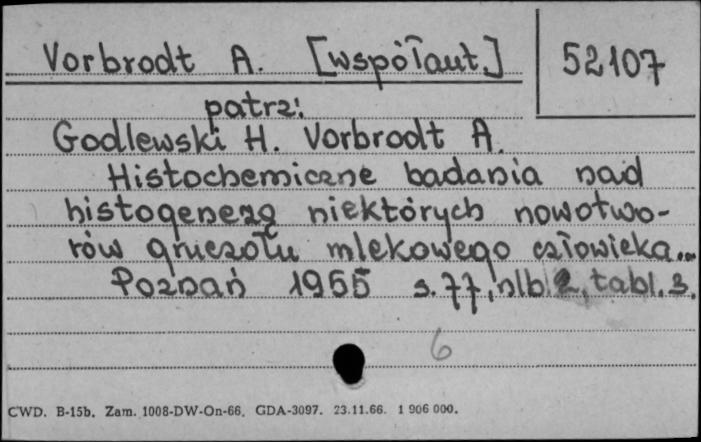 Vorbrodt A. [współaut.] 52107
patrz:
Godlewski H. Vorbrodt A.
Histochemiczne badania nad
histogenezą niektórych nowotwo-
rów gruczołu mlekowego człowieka...
Poznań 1955 s. 77, nlb 2, tabl. 3.
6
CWD. B-15b. Zam. 1008-DW-On-66. GDA-3097. 23.11.66. 1 906 000.